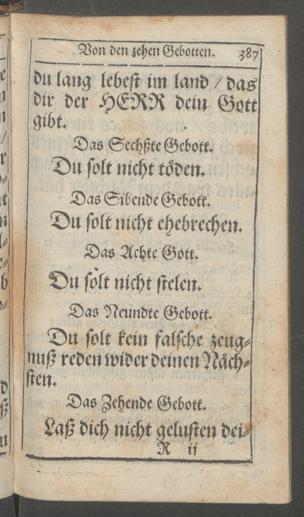 Von den zehen Gebotten. 387
du lang lebest im land / das
dir der HERR dein Gott
gibt.
Das Sechßte Gebott.
Du solt nicht töden.
Das Sibende Gebott.
Du solt nicht ehebrechen.
Das Achte Gott.
Du solt nicht stelen.
Das Neundte Gebott.
Du solt kein falsche zeug-
nuß reden wider deinen Näch-
sten.
Das Zehende Gebott.
Laß dich nicht gelusten dei-
R ii